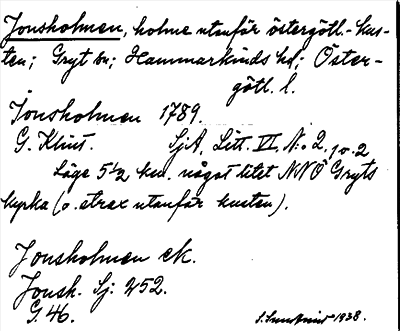 Jonsholmen, holme utanför östergötl.-kus-
ten; Gryt sn; Hammarkinds hd; Öster-
götl. l.
Jonsholmen 1789.
G. Klint. SjA, Litt. VI, N:o 2, 10.2
Läge 5 1/2 km. något litet NNÖ Gryts
kyrka (o. strax utanför kusten).
Jonsholmen ek.
Jonsh. Sj: 252.
G 46.
1938.